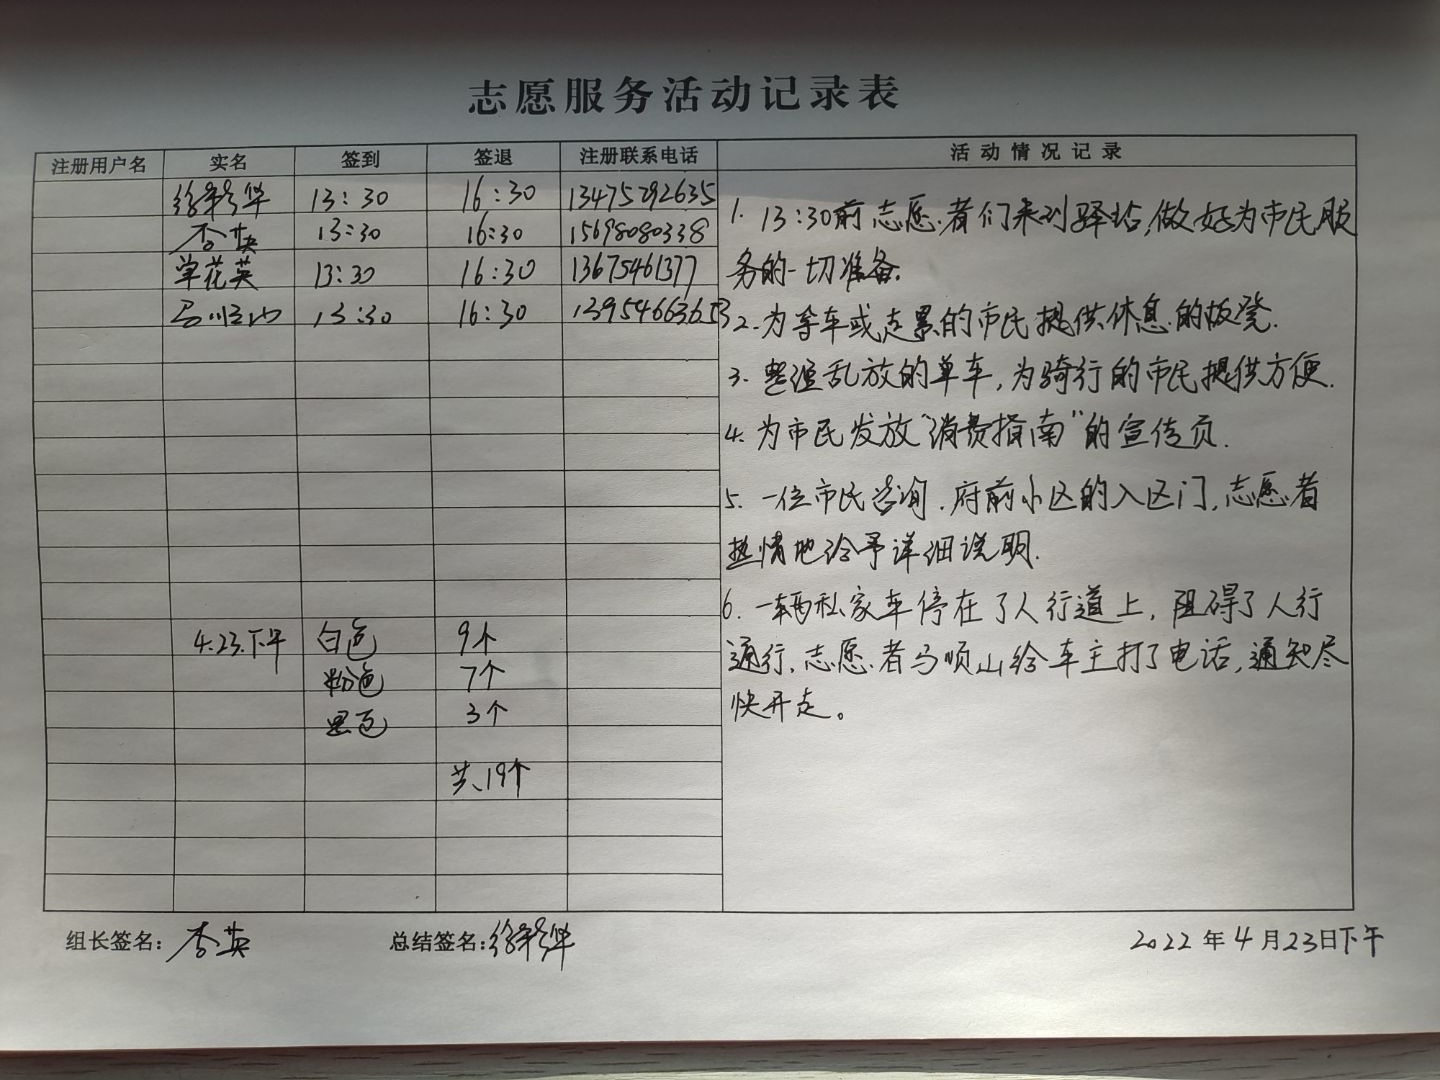 志愿服务活动记录表
注册用户名 实名 签到 签退 注册联系电话 活动情况记录
13:30 16:30 13475292635
李英 13:30 16:30 15698080338
花英 13:30 16:30 13675461377
马顺山 13:30 16:30 13954663653
1. 13:30前志愿者们来到驿站,做好为市民服
务的一切准备.
2.为等车或走累的市民提供休息的板凳.
3.整理乱放的单车,为骑行的市民提供方便.
4.为市民发放“消费指南”的宣传页.
5.一位市民咨询.府前小区的入区门,志愿者
热情地给予详细说明.
6.一辆私家车停在了人行道上,阻碍了人行
通行.志愿者马顺山给车主打了电话,通知尽
快开走。
4.23.下午 白色 9个
粉色 7个
黑色 3个
共19个
组长签名:李英 总结签名: 2022年4月23日下午